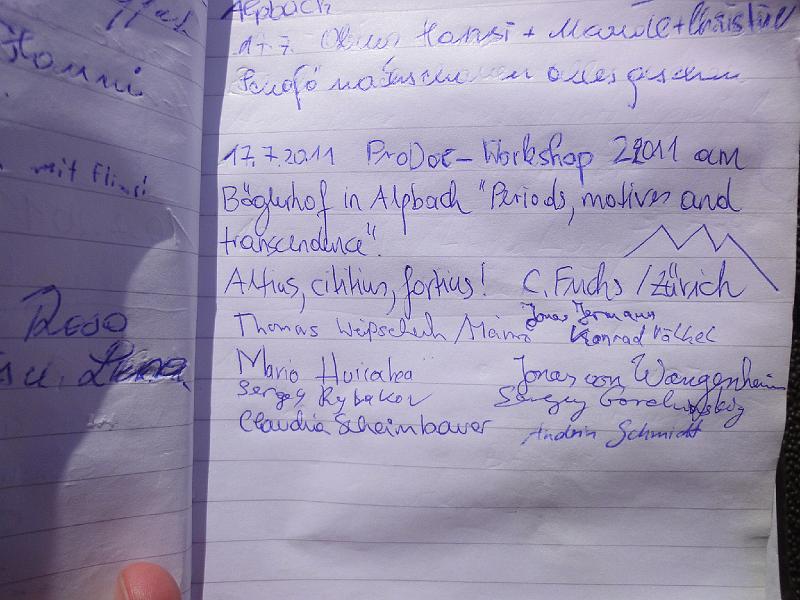 Hanni
mit Flinsi
Reso
Alpbach
17.7. Hansi +
alles gesehen
17.7.2011 ProDoc-Workshop 2011 am
Böglerhof in Alpbach "Periods, motives and
transcendence".
Altius, citius, fortius! C. Fuchs / Zürich
Thomas / Mainz Jonas Jermann
Konrad Völkel
Mario Huicochea Jonas von Wangenheim
Sergey Rybakov Sergey Gorchinskiy
Claudia Scheimbauer Andrin Schmidt